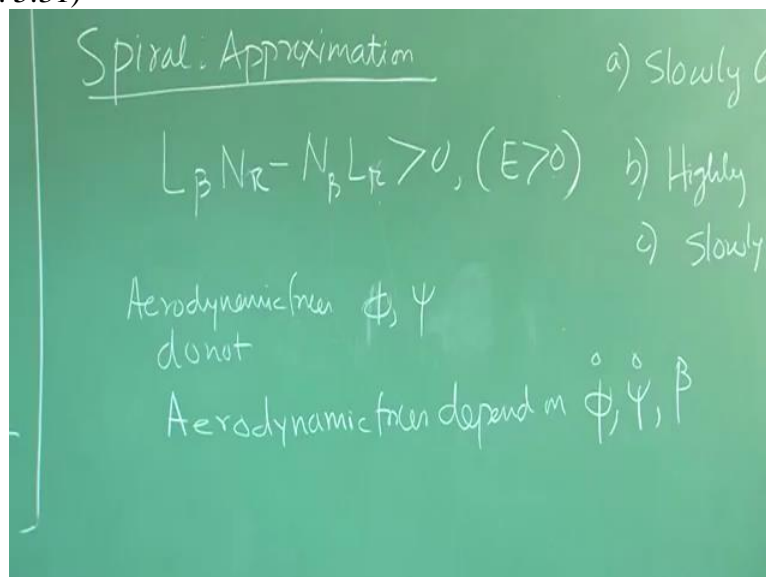 Spiral: Approximation
L_β N_R - N_β L_R > 0, (E>0)
a) Slowly
b) Highly
c) Slowly
Aerodynamic forces ϕ, ψ
do not
Aerodynamic forces depend on ϕ̇, ψ̇, β